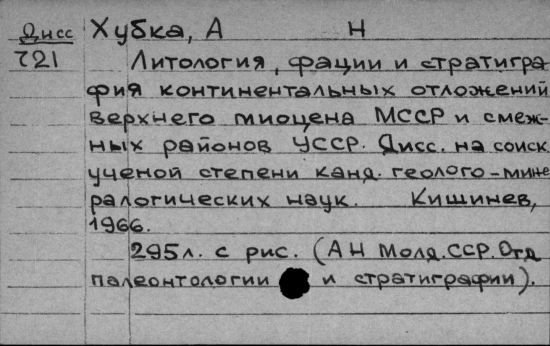 Дисс Хубка, А Н
721 Литология, фации и стратигра
фия континентальных отложений
верхнего миоцена МССР и смеж-
ных районов УССР. Дисс. на соиск
ученой степени канд. геолого-мине
ралогических наук. Кишинев,
1966.
295л. с рис. (АН Молд.ССР. Отд
палеонтологии и стратиграфии).